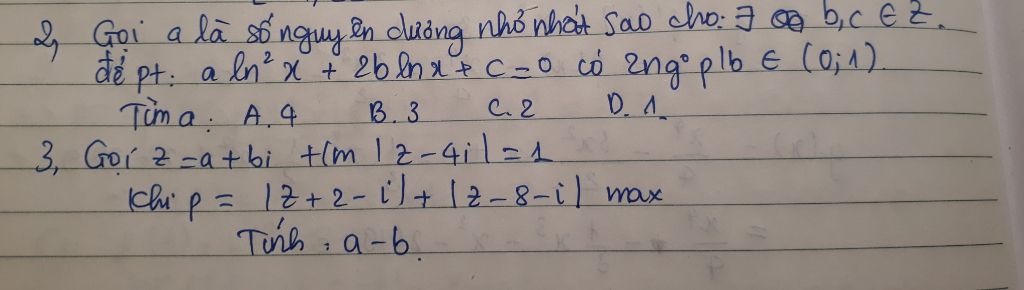 2, Gọi a là số nguyên dương nhỏ nhất sao cho: ∃ b,c ∈ Z.
để pt: a ln²x + 2b lnx + c = 0 có 2ng° p/b ∈ (0;1).
Tìm a: A. 4 B. 3 C. 2 D. 1.
3, Gọi z = a + bi t/m |z - 4i| = 1
Khi p = |z + 2 - i| + |z - 8 - i| max
Tính: a - b.